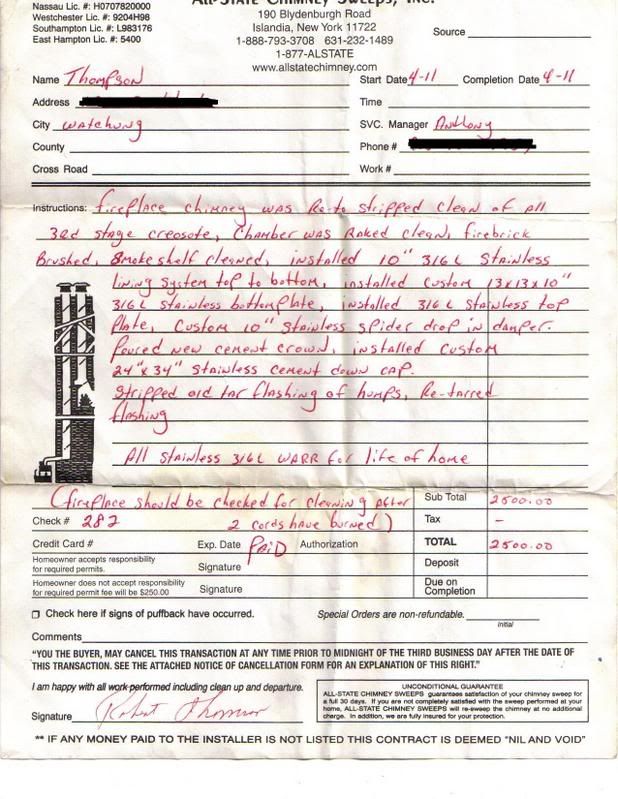 Nassau Lic. #: H0707820000
Westchester Lic. #: 9204H98
Southampton Lic. #: L983176
East Hampton Lic. #: 5400
All-State Chimney Sweeps, Inc.
190 Blydenburgh Road
Islandia, New York 11722
1-888-793-3708 631-232-1489
1-877-ALSTATE
www.allstatechimney.com
Source
Name Thompson
Start Date 4-11 Completion Date 4-11
Address
Time
City Watchung
SVC. Manager Anthony
County
Phone #
Cross Road
Work #
Instructions: fireplace chimney was Ro-to stripped clean of all
3rd stage creosote, Chamber was Raked clean, firebrick
Brushed, Smokeshelf cleaned, installed 10" 316 L Stainless
lining system top to bottom, installed custom 13x13x10"
316 L stainless bottomplate, installed 316 L stainless top
Plate, Custom 10" stainless spider drop in damper.
Poured new cement crown, installed custom
24"x 34" Stainless cement down cap.
Stripped old tar flashing of humps, Re-tarred
flashing
All stainless 316 L WARR for life of home
(fireplace should be checked for cleaning after
2 cords have burned)
Sub Total 2500.00
Check # 282
Tax –
Credit Card # Exp. Date PAiD Authorization
TOTAL 2500.00
Homeowner accepts responsibility
for required permits. Signature
Deposit
Homeowner does not accept responsibility
for required permit fee will be $250.00 Signature
Due on
Completion
Check here if signs of puffback have occurred.
Special Orders are non-refundable.
Initial
Comments
"YOU THE BUYER, MAY CANCEL THIS TRANSACTION AT ANY TIME PRIOR TO MIDNIGHT OF THE THIRD BUSINESS DAY AFTER THE DATE OF
THIS TRANSACTION. SEE THE ATTACHED NOTICE OF CANCELLATION FORM FOR AN EXPLANATION OF THIS RIGHT."
I am happy with all work performed including clean up and departure.
Signature Robert Thomson
UNCONDITIONAL GUARANTEE
ALL-STATE CHIMNEY SWEEPS guarantees satisfaction of your chimney sweep for
a full 30 days. If you are not completely satisfied with the sweep performed at your
home, ALL-STATE CHIMNEY SWEEPS will re-sweep the chimney at no additional
charge. In addition, we are fully insured for your protection.
** IF ANY MONEY PAID TO THE INSTALLER IS NOT LISTED THIS CONTRACT IS DEEMED "NIL AND VOID"